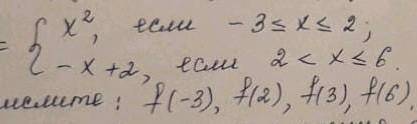 = { x², если -3 ≤ x ≤ 2;
-x + 2, если 2 < x ≤ 6.
f(-3), f(2), f(3), f(6).